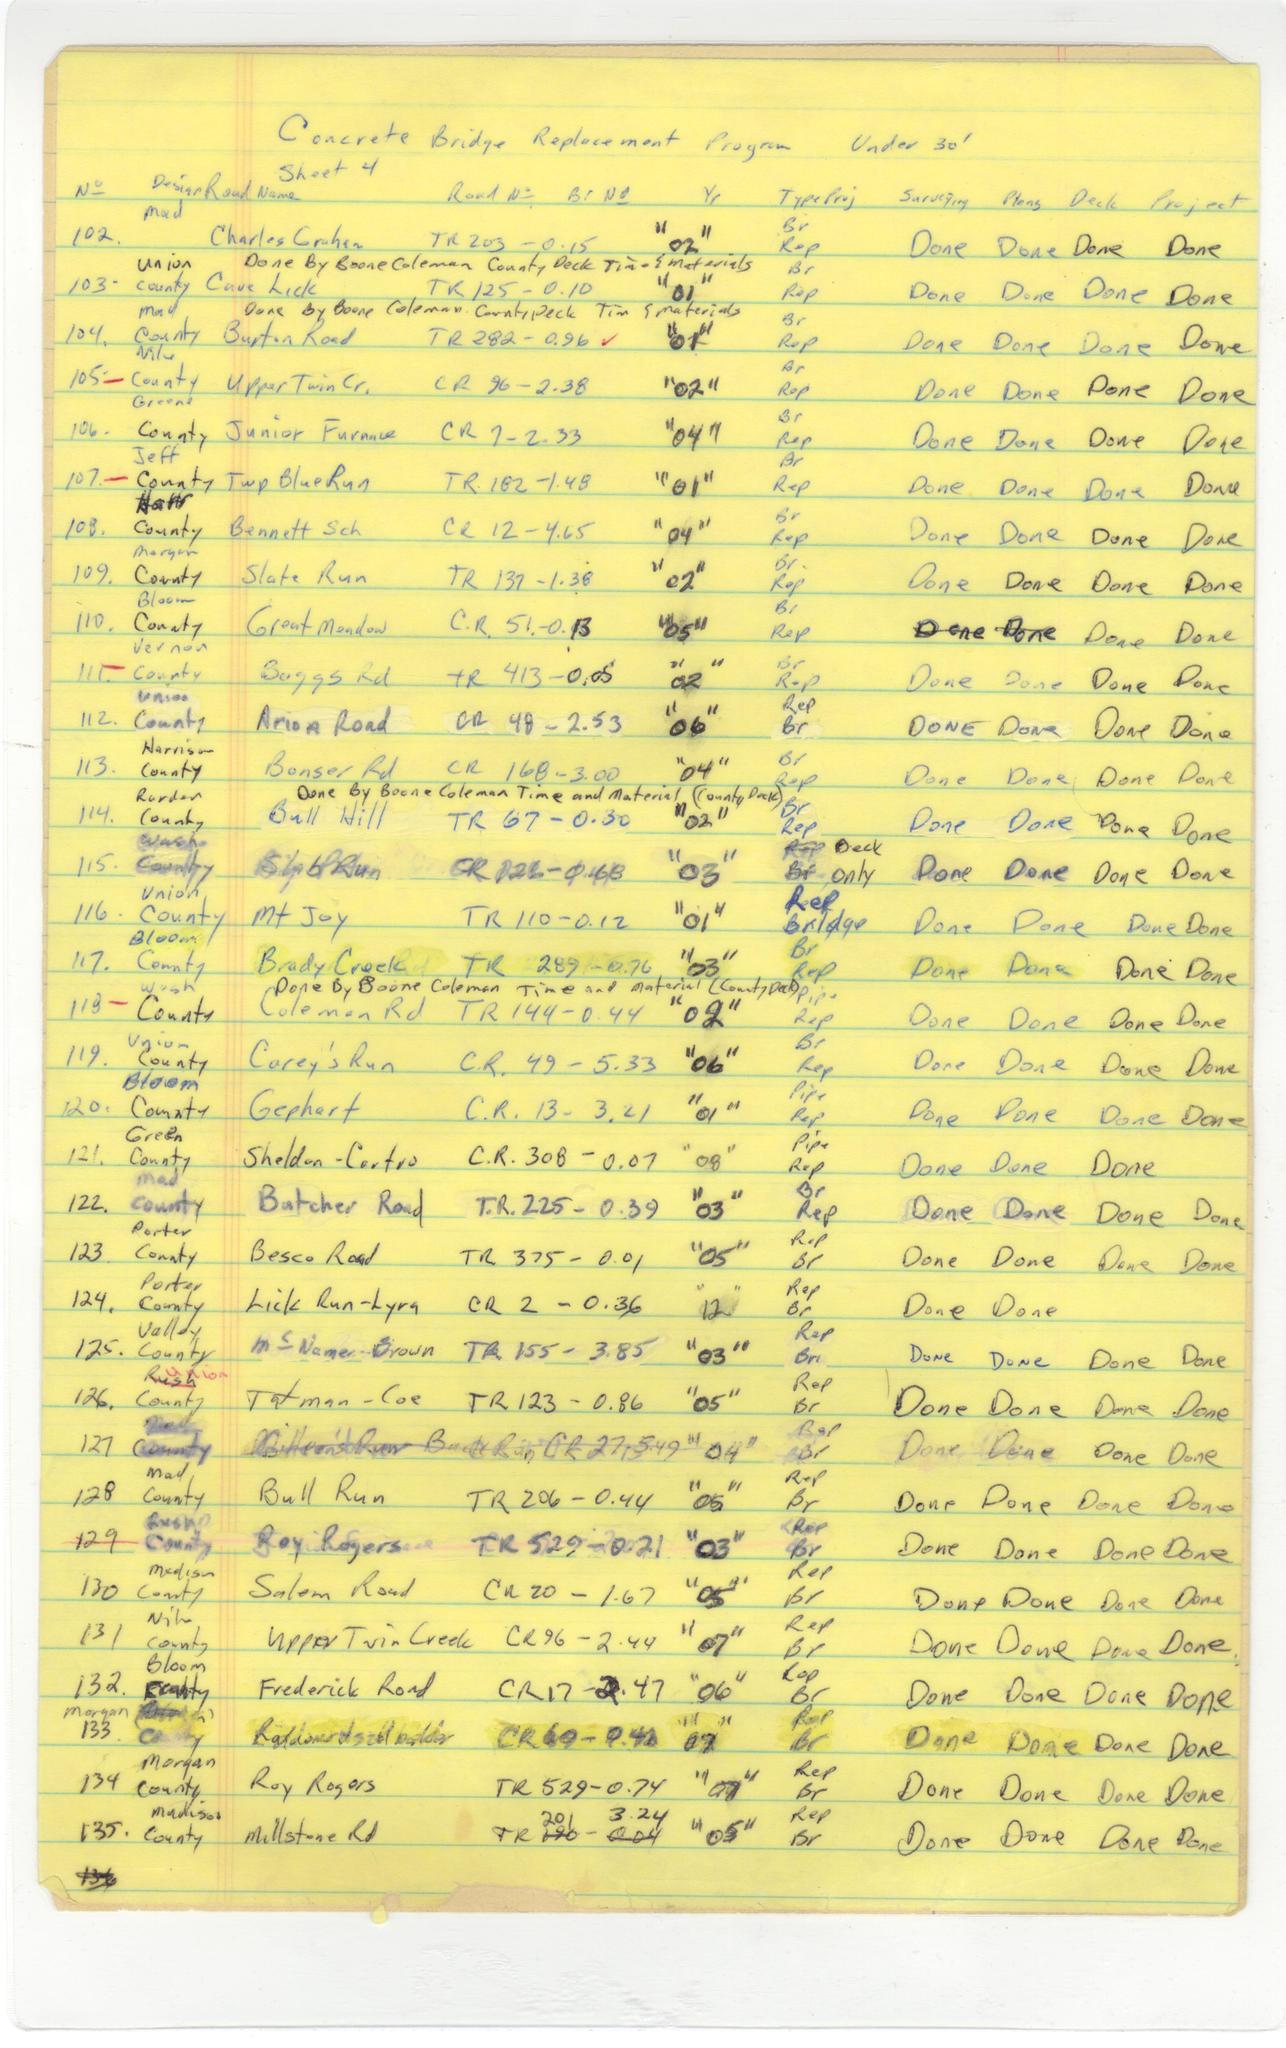 Concrete Bridge Replacement Program Under 30'
Sheet 4
No Design Road Name Road No. Br No Yr Type Proj Surveying Plans Deck Project
Mad Br
102. Charles Graham TR 203 - 0.15 "02" Rep Done Done Done Done
Union Done By Boone Coleman County Deck Time & Materials Br
103- County Cave Lick TR 125 - 0.10 "01" Rep Done Done Done Done
Mad Done By Boone Coleman County Deck Tim & Materials Br
104. County Burton Road TR 282 - 0.96 ✓ "01" Rep Done Done Done Done
Nile Br
105- County Upper Twin Cr. CR 96 - 2.38 "02" Rep Done Done Done Done
Greene Br
106. County Junior Furnace CR 7 - 2.33 "04" Rep Done Done Done Done
Jeff Br
107. County Twp Blue Run TR. 182 - 1.48 "01" Rep Done Done Done Done
Harr Br
108. County Bennett Sch CR 12 - 4.65 "04" Rep Done Done Done Done
Morgan Br.
109. County Slate Run TR 137 - 1.38 "02" Rep Done Done Done Done
Bloom Br
110. County Great Meadow C.R. 51 - 0.13 "05" Rep Done Done Done Done
Vernon Br
111- County Boggs Rd TR 413 - 0.05 "02" Rep Done Done Done Done
Union Rep
112. County Arion Road CR 48 - 2.53 "06" Br DONE Done Done Done
Harrison Br
113. County Bonser Rd CR 168 - 3.00 "04" Rep Done Done Done Done
Rarden Done By Boone Coleman Time and Material (County Deck) Br
114. County Bull Hill TR 67 - 0.30 "02" Rep Done Done Done Done
Wash Rep Deck
115. County Run CR "03" Br only Done Done Done Done
Union Rep
116. County Mt Joy TR 110 - 0.12 "01" Bridge Done Done Done Done
Bloom Br
117. County Brady Creek TR 289 - 0.76 "03" Rep Done Done Done Done
Wash Done By Boone Coleman Time and Material (County Deck) Pipe
118 - County Coleman Rd TR 144 - 0.44 "02" Rep Done Done Done Done
Union Br
119. County Carey's Run C.R. 49 - 5.33 "06" Rep Done Done Done Done
Bloom Pipe
120. County Gephart C.R. 13 - 3.21 "01" Rep Done Done Done Done
Green Pipe
121. County Sheldon - Cortro C.R. 308 - 0.07 "08" Rep Done Done Done
Mad Br
122. County Butcher Road T.R. 225 - 0.39 "03" Rep Done Done Done Done
Porter Rep
123 County Besco Road TR 375 - 0.01 "05" Br Done Done Done Done
Porter Rep
124. County Lick Run - Lyra CR 2 - 0.36 "12" Br Done Done
Valley Rep
125. County McNamer - Brown TR 155 - 3.85 "03" Br. Done Done Done Done
Rush Union Rep
126. County Tatman - Coe TR 123 - 0.86 "05" Br Done Done Done Done
Rep
127 County Run CR 27-5.49 "04" Br Done Done Done Done
Mad Rep
128 County Bull Run TR 206 - 0.44 "05" Br Done Done Done Done
Rush Rep
129 County Roy Rogers TR 529 - 0.21 "03" Br Done Done Done Done
Madison Rep
130 County Salem Road CR 20 - 1.67 "05" Br Done Done Done Done
Nile Rep
131 County Upper Twin Creek CR 96 - 2.44 "07" Br Done Done Done Done.
Bloom Rep
132. County Frederick Road CR 17 - 2.47 "06" Br Done Done Done Done
Morgan Rep
133 County CR Br Done Done Done Done
Morgan Rep
134 County Roy Rogers TR 529 - 0.74 "07" Br Done Done Done Done
Madison 201 3.24 Rep
135. County Millstone Rd TR - 0.04 "05" Br Done Done Done Done
136